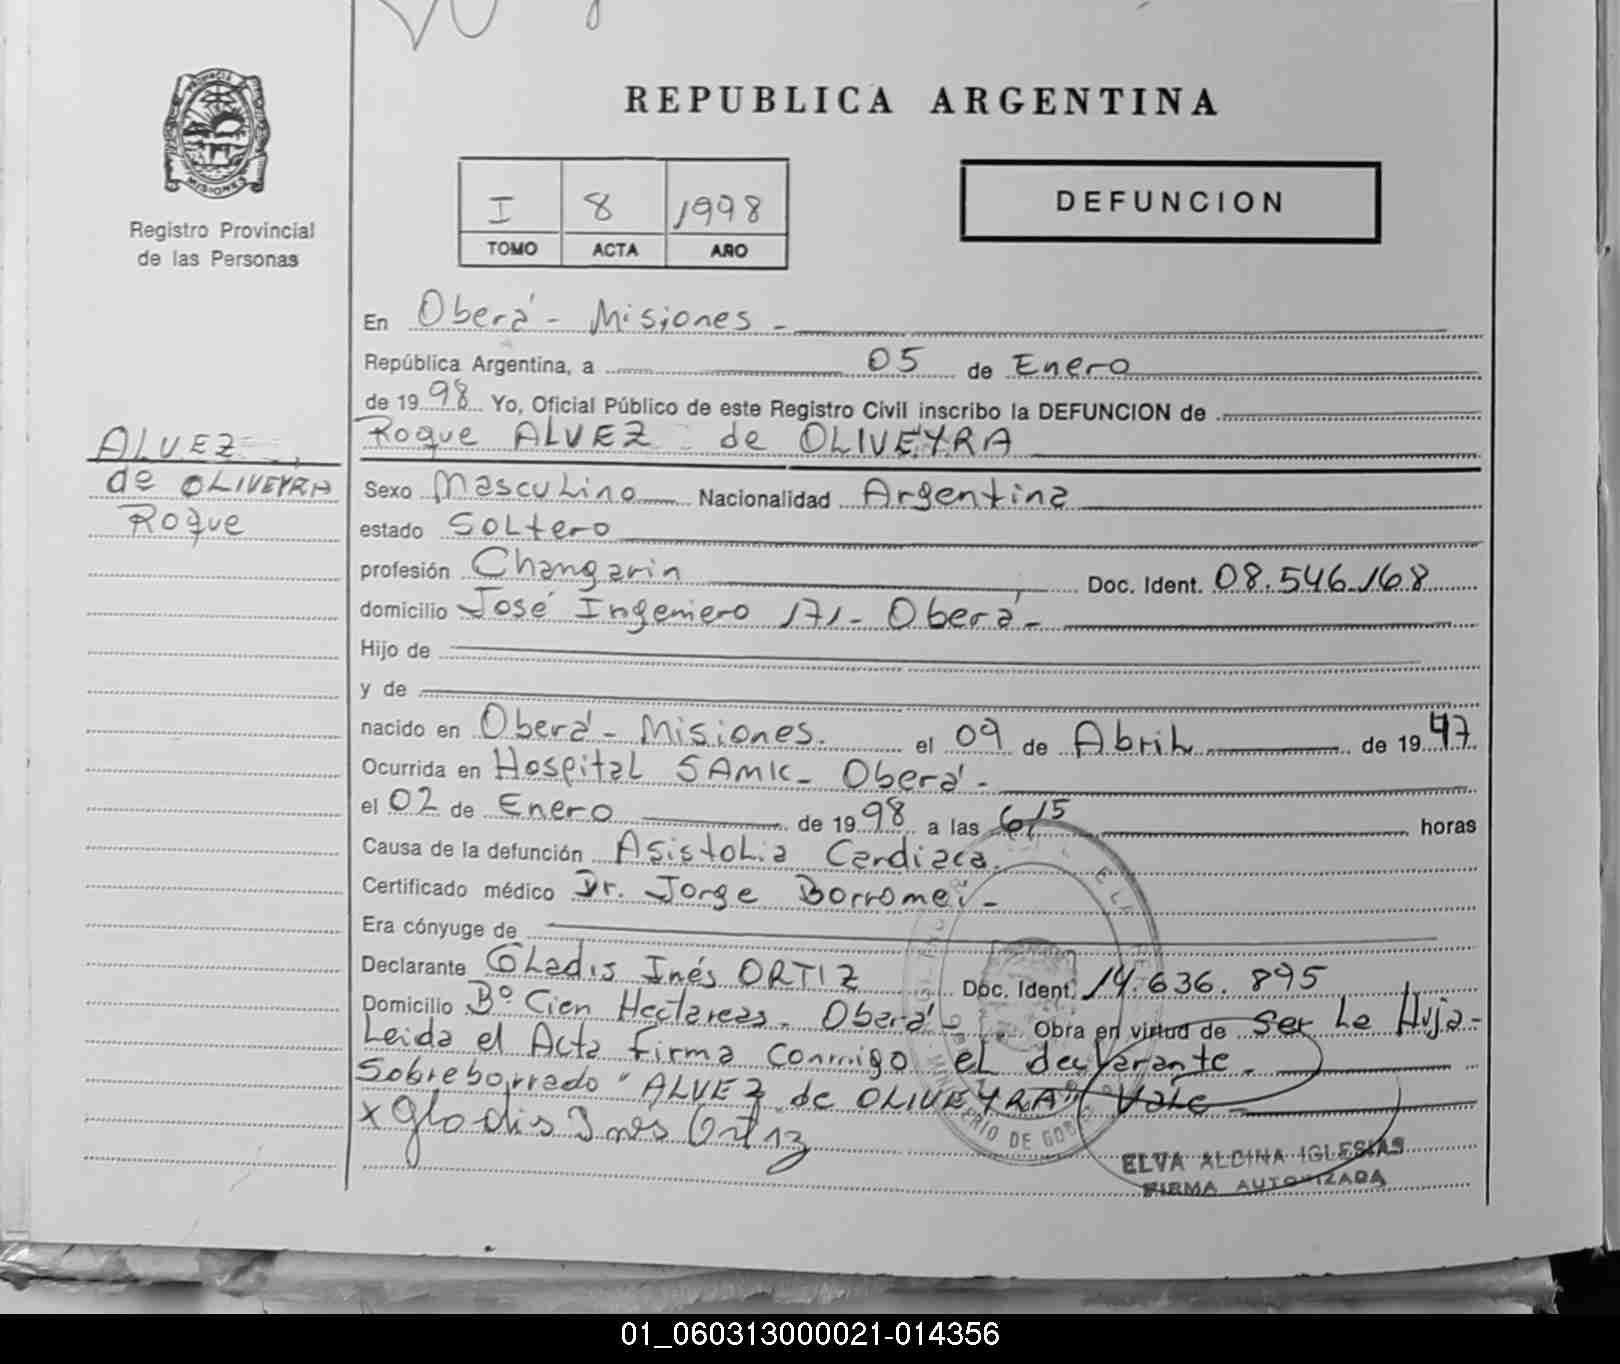 PROVINCIA
MISIONES
Registro Provincial
de las Personas
REPUBLICA ARGENTINA
I 8 1998
TOMO ACTA AÑO
DEFUNCION
En Oberá - Misiones -
República Argentina, a 05 de Enero
de 1998 Yo, Oficial Público de este Registro Civil inscribo la DEFUNCION de
Roque ALVEZ de OLIVEYRA
ALVEZ
de OLIVEYRA
Roque
Sexo Masculino Nacionalidad Argentina
estado Soltero
profesión Changarin Doc. Ident. 08.546.168
domicilio José Ingeniero 171 - Oberá -
Hijo de
y de
nacido en Oberá - Misiones. el 09 de Abril de 1947
Ocurrida en Hospital SAMIC - Oberá -
el 02 de Enero de 1998 a las 6,15 horas
Causa de la defunción Asistolia Cardiaca.
Certificado médico Dr. Jorge Borromei -
Era cónyuge de
Declarante Gladis Inés ORTIZ Doc. Ident. 14.636.895
Domicilio Bº Cien Hectareas - Oberá - Obra en virtud de Ser La Hija -
Leida el Acta firma conmigo el declarante.
Sobreborrado "ALVEZ de OLIVEYRA" Vale
x Gladis Inés Ortiz
MINISTERIO DE GOB
ELVA ALCINA IGLESIAS
FIRMA AUTORIZADA
01_060313000021-014356